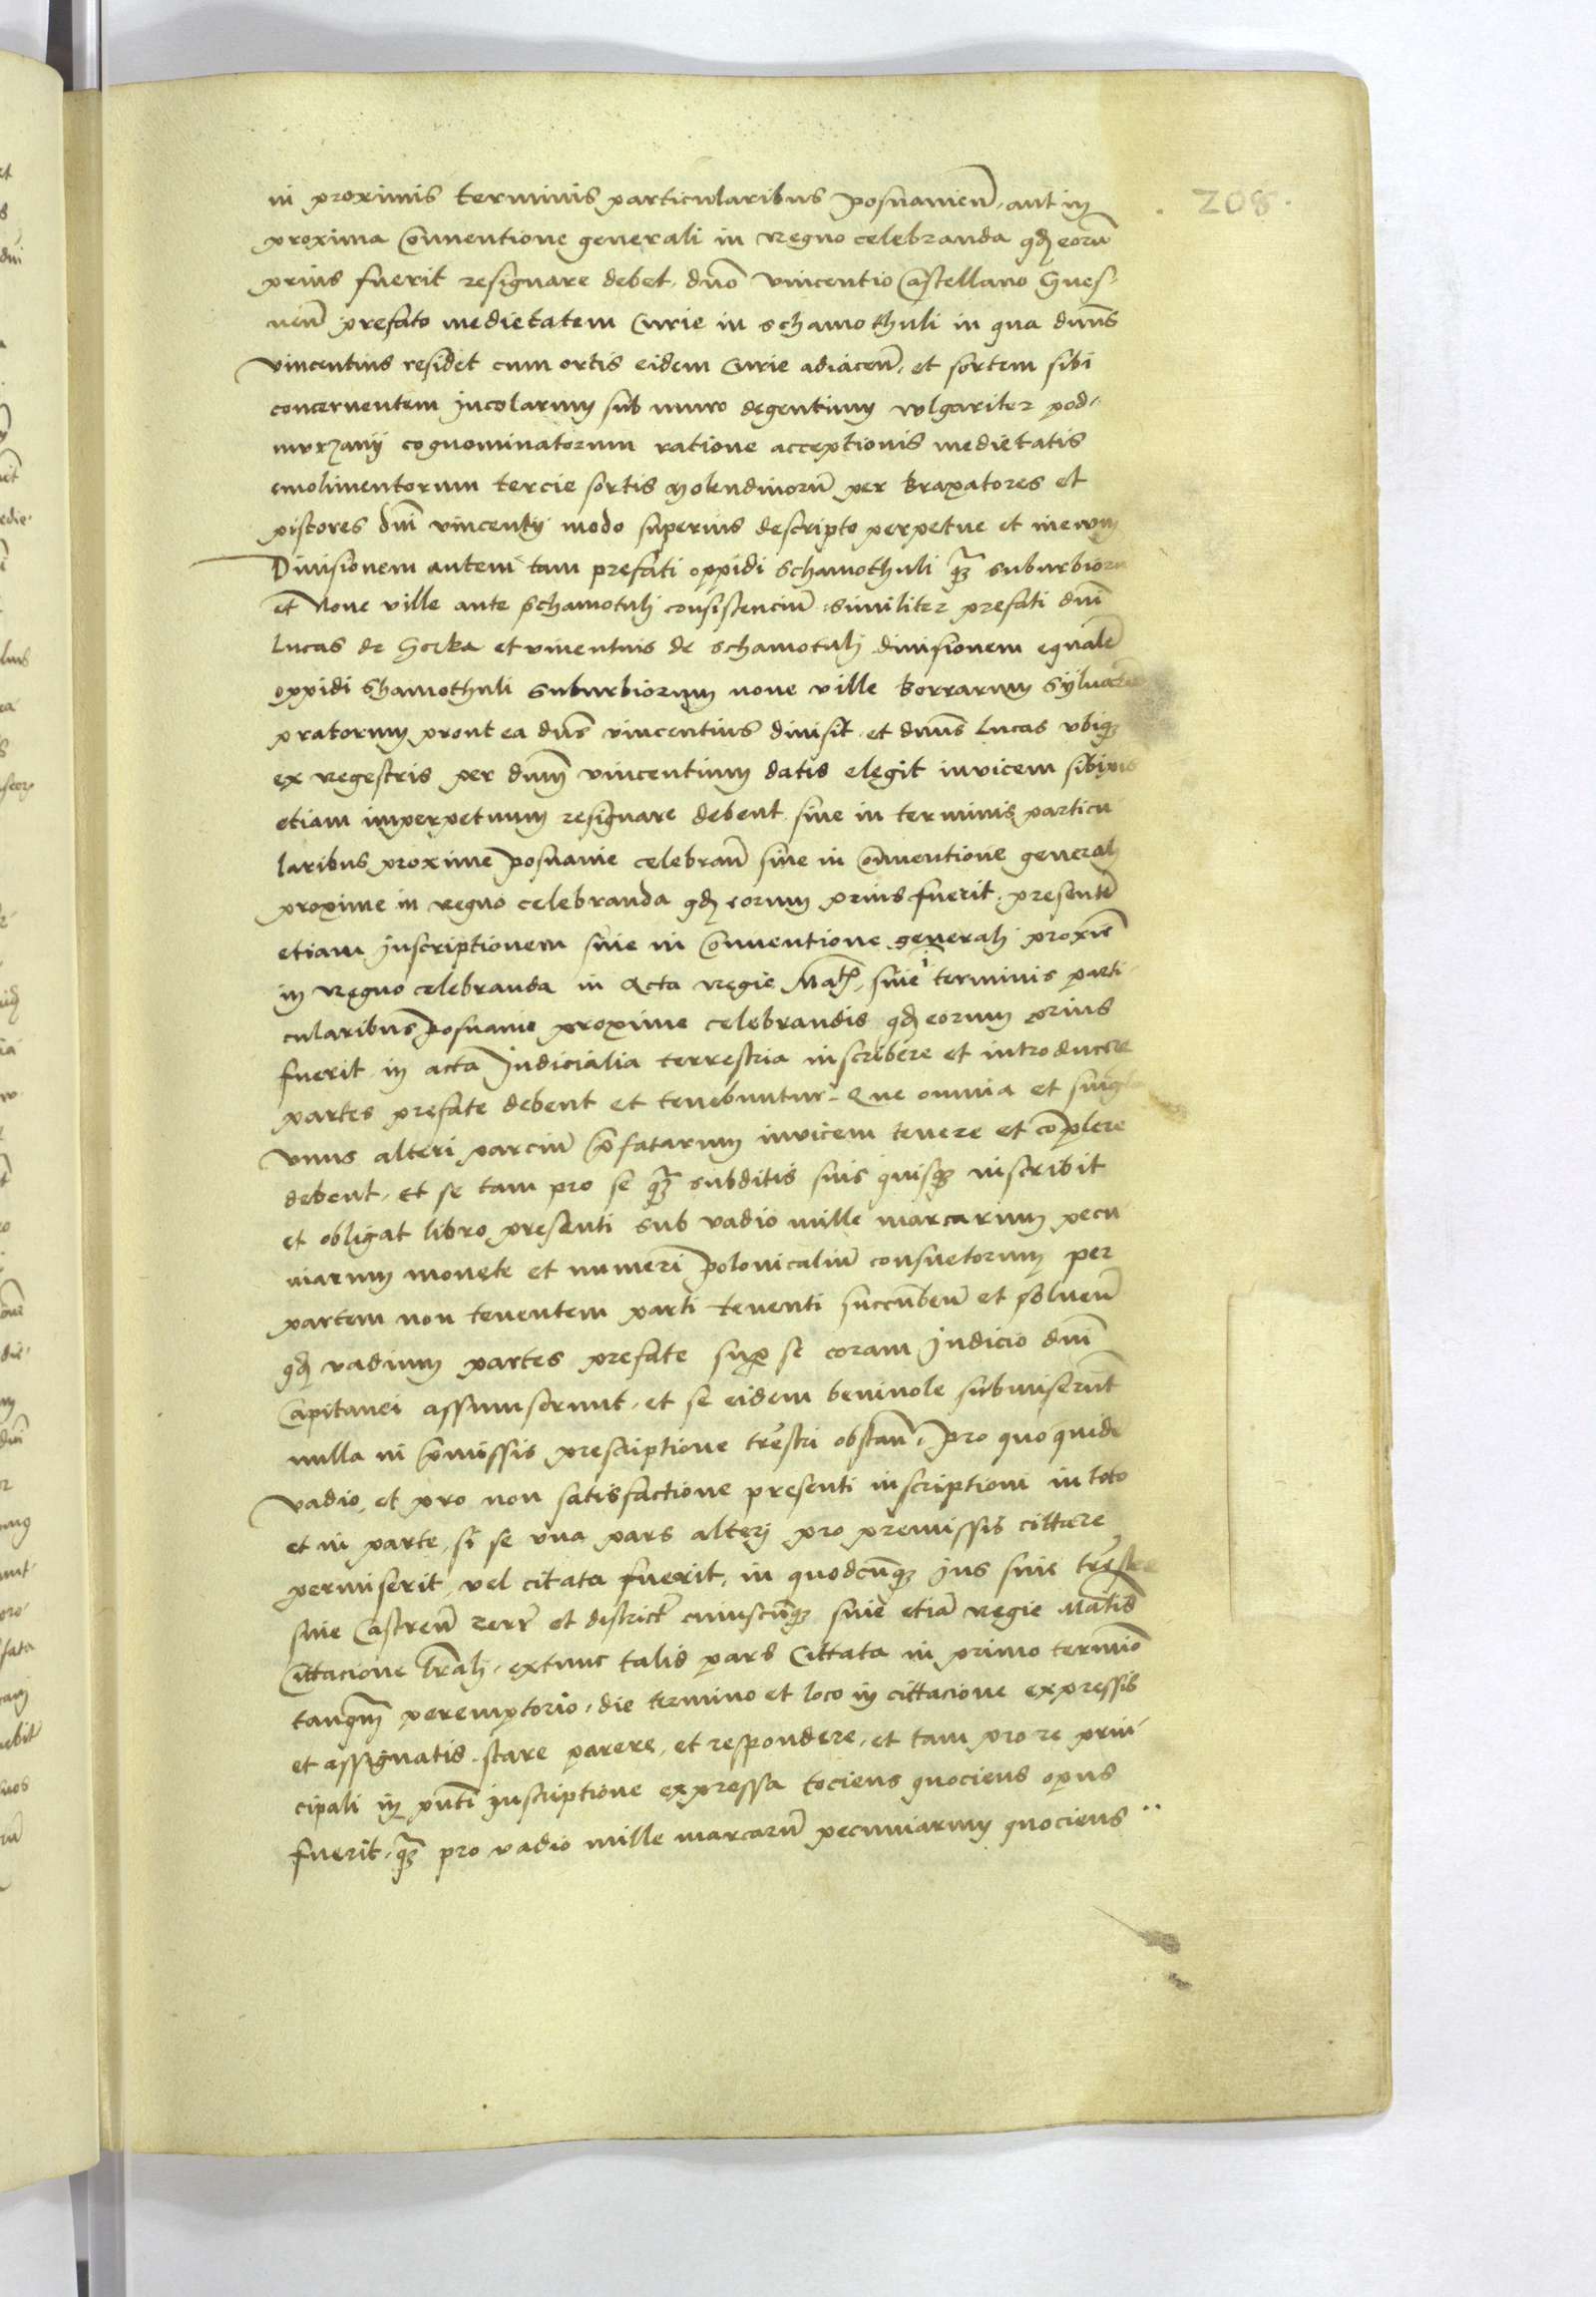 208.
in proximis terminis particularibus posnanien̄. aut in
proxima Conventione generali in Regno celebranda qđ eorū
prius fuerit resignare debet. dn̄o vincentio Castellano Gnes-
nen̄ prefato medietatem Curie in schamothuli in qua dn̄us
vincentius residet cum ortis eidem Curie adiacen̄. et sortem sibi
concernentem Incolarum sub muro degentium vulgariter pod-
murzanij cognominatorum ratione acceptionis medietatis
emolimentorum tercie sortis Molendinorū per braxatores et
pistores dn̄i vincentij modo superius descripto perpetue et in ewm
Divisionem autem tam prefati oppidi schamothuli q̄ȝ suburbiorū
et Nove ville ante schamotulj consistenciū similiter prefati dn̄i
Lucas de Gorka et vincentius de schamotulj divisionem equalē
oppidi shamothuli suburbiorum nove ville borrarum sylvarū
pratorum prout ea dn̄s vincentius divisit et dn̄us Lucas vbiqȝ
ex regestris per dn̄m vincentium datis elegit invicem sibi
etiam imperpetuum resignare debent sive in terminis particu
laribus proxime posnanie celebran̄ sive in Conventione generalj
proxime in regno celebranda qđ eorum prius fuerit. presentē
etiam Inscriptionem sive in Conventione generalj proxie
in Regno celebranda in Acta Regie Mat̄. sive i terminis parti-
cularibus posnanie proxime celebrandis qđ eorum prius
fuerit in acta Iudicialia terrestria inscribere et introducere
partes prefate debent et tenebuntur. Que omnia et singla
vnus alteri parciū p̄fatarum invicem tenere et cōplere
debent. et se tam pro se q̄ȝ subditis suis quisqȝ inscribit
et obligat libro presenti sub vadio mille marcarum pecu
niarum monete et numeri polonicaliū consuetorum per
partem non tenentem parti tenenti succūben̄ et solven̄
qđ vadium partes prefate sup se coram Iudicio dn̄i
Capitanei assumserunt. et se eidem benivole submiserūt
nulla in p̄missis prescriptione tr̄estri obstan̄. pro quo quidē
vadio, et pro non satisfactione presenti inscriptioni in toto
et in parte, si se vna pars alterj pro premissis cittare
permiserit, vel citata fuerit, in quodcūqȝ Ius sive tr̄estre
sive Castren̄ terr̄ et district̄ cuiuscūqȝ sive etiā Regie Mat̄is
Cittacione lr̄alj. extunc talis pars Cittata in primo termīo
tanq̄m peremptorio. die termino et loco in cittacione expressis
et assignatis. stare parere, et respondere, et tam pro re prin
cipali in pn̄ti Inscriptione expressa tociens quociens opus
fuerit. q̄ȝ pro vadio mille marcarū pecuniarum quociens